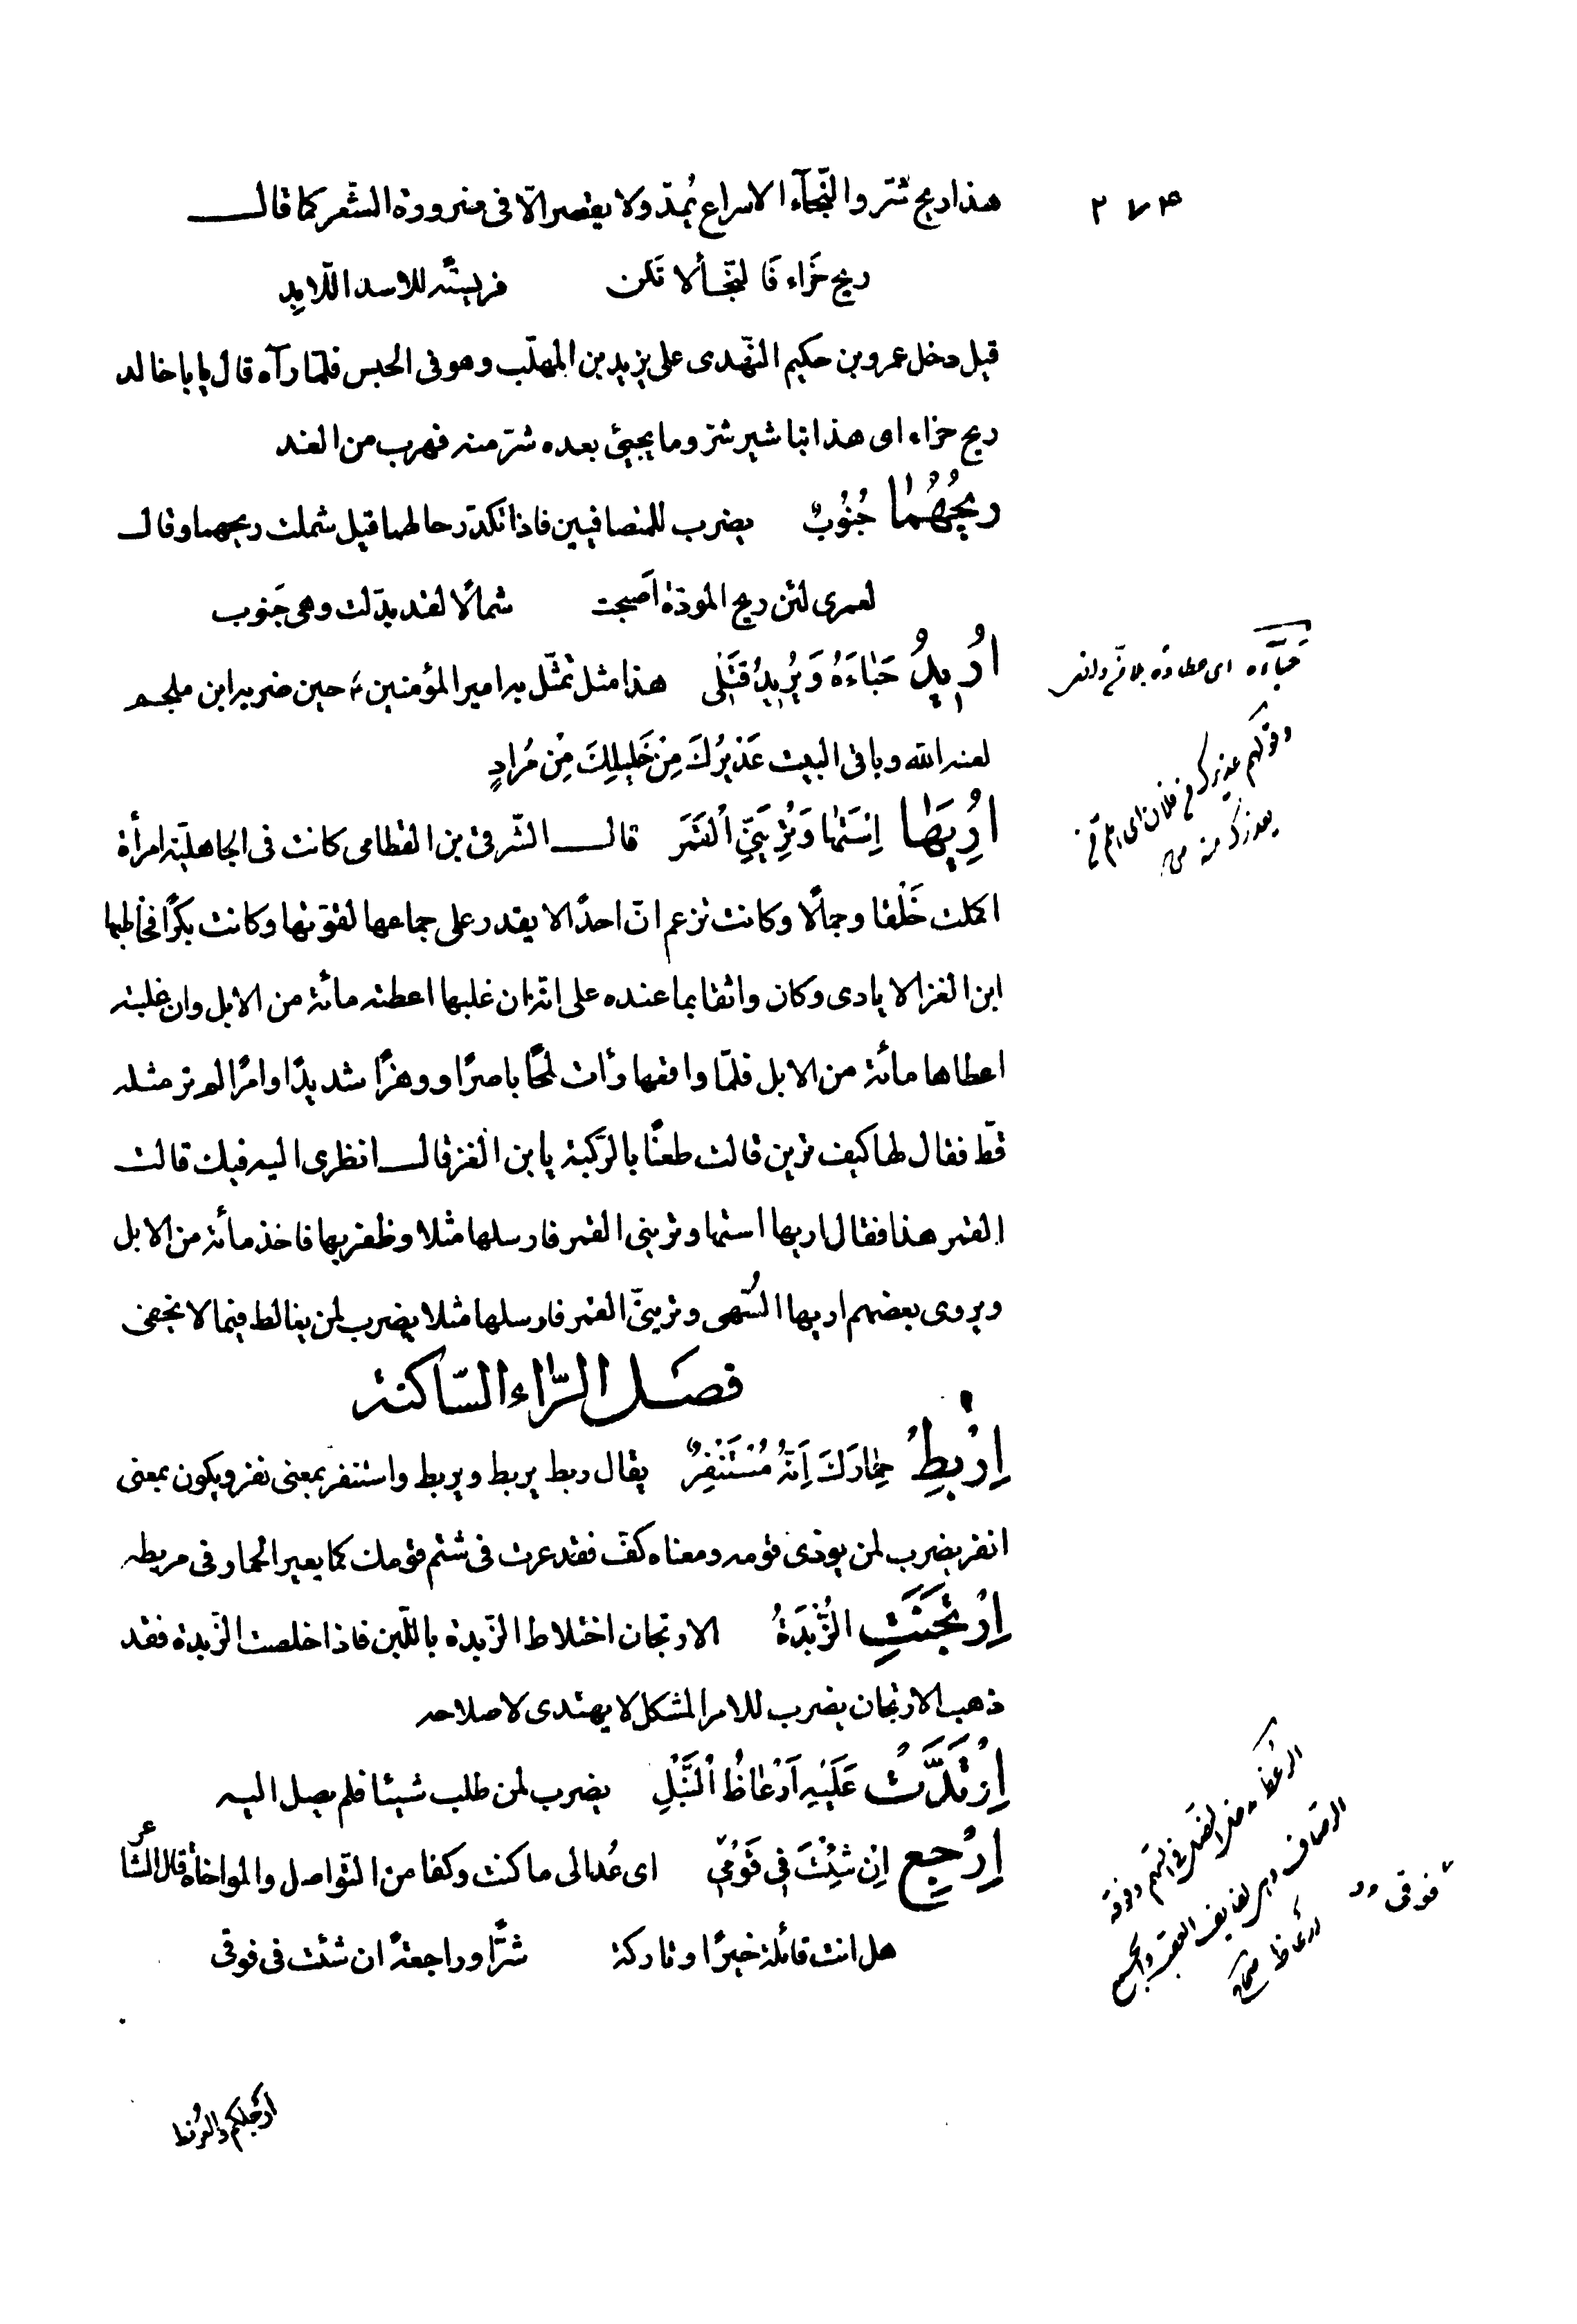 هذا ريح شرّ والنّجآء الاسراع يُمدّ ولا يقصر الّا فى ضرورة الشّعر كما قال
ريح خَزاء فَالنّجأ لا تَكن فريسَته للاسد اللّابِد
قيل دخل عمرو بن حكيم النّهدى على يزيد بن المهلّب وهو فى الحبس فلمّا رآه قال يا با خالد
ريح خزاء اى هذا تباشير شرّ وما يجيئ بعده شرّ منه فهرب من الغد
ريحُهُمٰا جُنُوبٌ يضرب للمتصافيين فاذا تكدّر حالهما قيل شملت ريحهما وقال
لعمرى لئن ريح المودّة اَصبحت شمالًا لقد بدّلت وهى جَنوب
اُريدُ حَبٰاءَهُ وَيُريدُ قَتْلى هذا مثل تمثّل به امير المؤمنين ع حين ضربه ابن ملجم
لعنه الله وباقى البيت عَذيرُكَ مِنْ خَليلِكَ مِنْ مُرادٍ
اُرِيَهٰا اِسْتَهٰا وَتُرِيَنِّى اْلقَمَرَ قال الشّرقى بن القطامى كانت فى الجاهليّة امرأة
اكملت خَلْقا وجمالًا وكانت تزعم انّ احدًا لا يقدر على جماعها لقوّتها وكانت بكرًا فخاطبها
ابن الغز الايادى وكان واثقا بما عنده على انّه ان غلبها اعطته مائة من الابل وان غلبته
اعطاها مائة من الابل فلمّا واقعها رأت لمحًا باصرًا ووهزًا شديدًا وامرًا لم تر مثله
قطّ فقال لها كيف ترين قالت طعنًا بالرّكبة يا بن الغز قال انظرى اليه فيك قالت
القمر هذا فقال اريها استها وترينى القمر فارسلها مثلا وظفر بها فاخذ مائة من الابل
ويروى بعضهم اريها السُّهى وترينىّ القمر فارسلها مثلا يضرب لمن يغالط فيما لا يخفى
فصل الرّاء السّاكنة
اِرْبِطْ حِمٰارَكَ اِنَّهُ مُسْتَنْفِرٌ يقال ربط يربط ويربط واستنفر بمعنى نفر ويكون بمعنى
انفر يضرب لمن يوذى قومه ومعناه كفّ فقد عرت فى شتم قومك كما يعير الحمار فى مربطه
اِرْتَجَنَتِ الزُّبْدَةُ الارتجان اختلاط الزّبدة باللّبن فاذا خلصت الزّبدة فقد
ذهب الارتجان يضرب للامر المشكل لا يهتدى لاصلاحه
اِرْتَدَّتْ عَلَيْهِ اَرْعٰاظُ اْلنَّبْلِ يضرب لمن طلب شيئا فلم يصل اليه
اِرْجِع اِنْ شِئْتَ فى فَوْقى اى عُد الى ما كنت وكنا من التّواصل والمواخاة قال الشّاعر
هل انت قائلة خيرًا وتاركة شرًّا وراجعةً ان شئت فى فوقى
حَبَآءَه اى عطاءه
وقولهم عذيرك من فلان اى هلم من
يعذرك منه
الرُعظ مدخل النصل فى السهم وفوقه
الرصاف وهى لفايف العقب والجمع
ارعاظ صحاح
فوقى
ارجلكم والعرفط